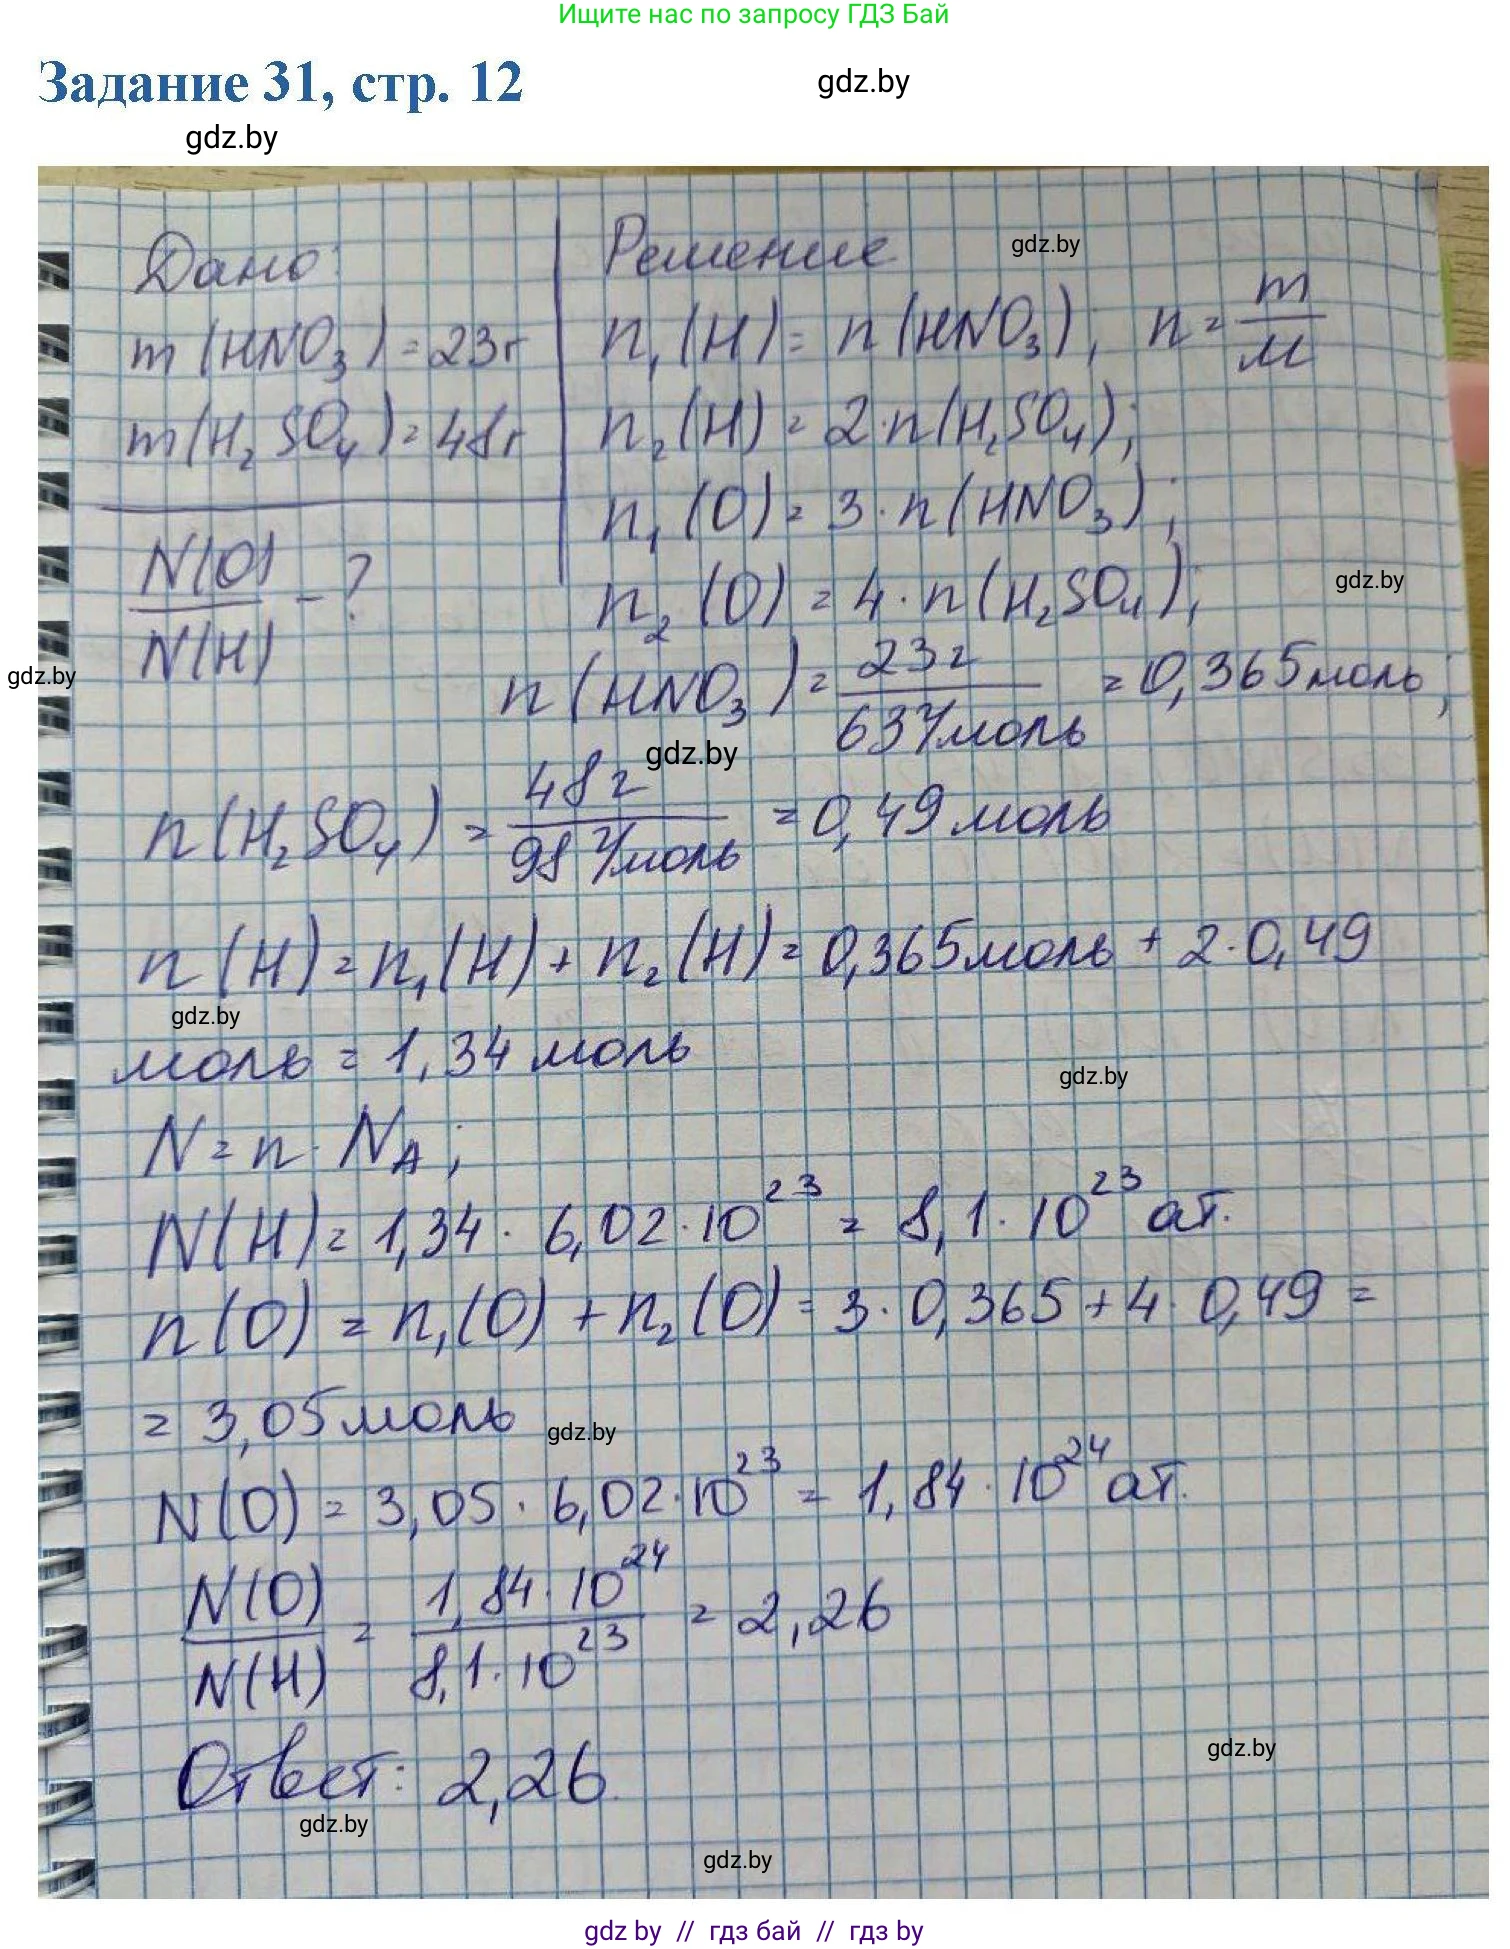 Ищите нас по запросу ГДЗ Бай
Задание 31, стр. 12
gdz.by
gdz.by
Дано:
m(HNO₃) = 23г
m(H₂SO₄) = 48г
N(O)/N(H) - ?
Решение
gdz.by
n₁(H) = n(HNO₃); n = m/M
n₂(H) = 2·n(H₂SO₄);
n₁(O) = 3·n(HNO₃);
gdz.by
n₂(O) = 4·n(H₂SO₄);
gdz.by
n(HNO₃) = 23г/63 г/моль = 0,365 моль;
gdz.by
n(H₂SO₄) = 48г/98 г/моль = 0,49 моль
n(H) = n₁(H) + n₂(H) = 0,365 моль + 2·0,49
gdz.by
моль = 1,34 моль
gdz.by
N = n·N_A;
N(H) = 1,34 · 6,02·10²³ = 8,1·10²³ ат.
n(O) = n₁(O) + n₂(O) = 3·0,365 + 4·0,49 =
= 3,05 моль
gdz.by
N(O) = 3,05 · 6,02·10²³ = 1,84·10²⁴ ат.
N(O)/N(H) = 1,84·10²⁴/8,1·10²³ = 2,26
gdz.by
Ответ: 2,26.
gdz.by
gdz.by
gdz by // гдз бай // гдз by